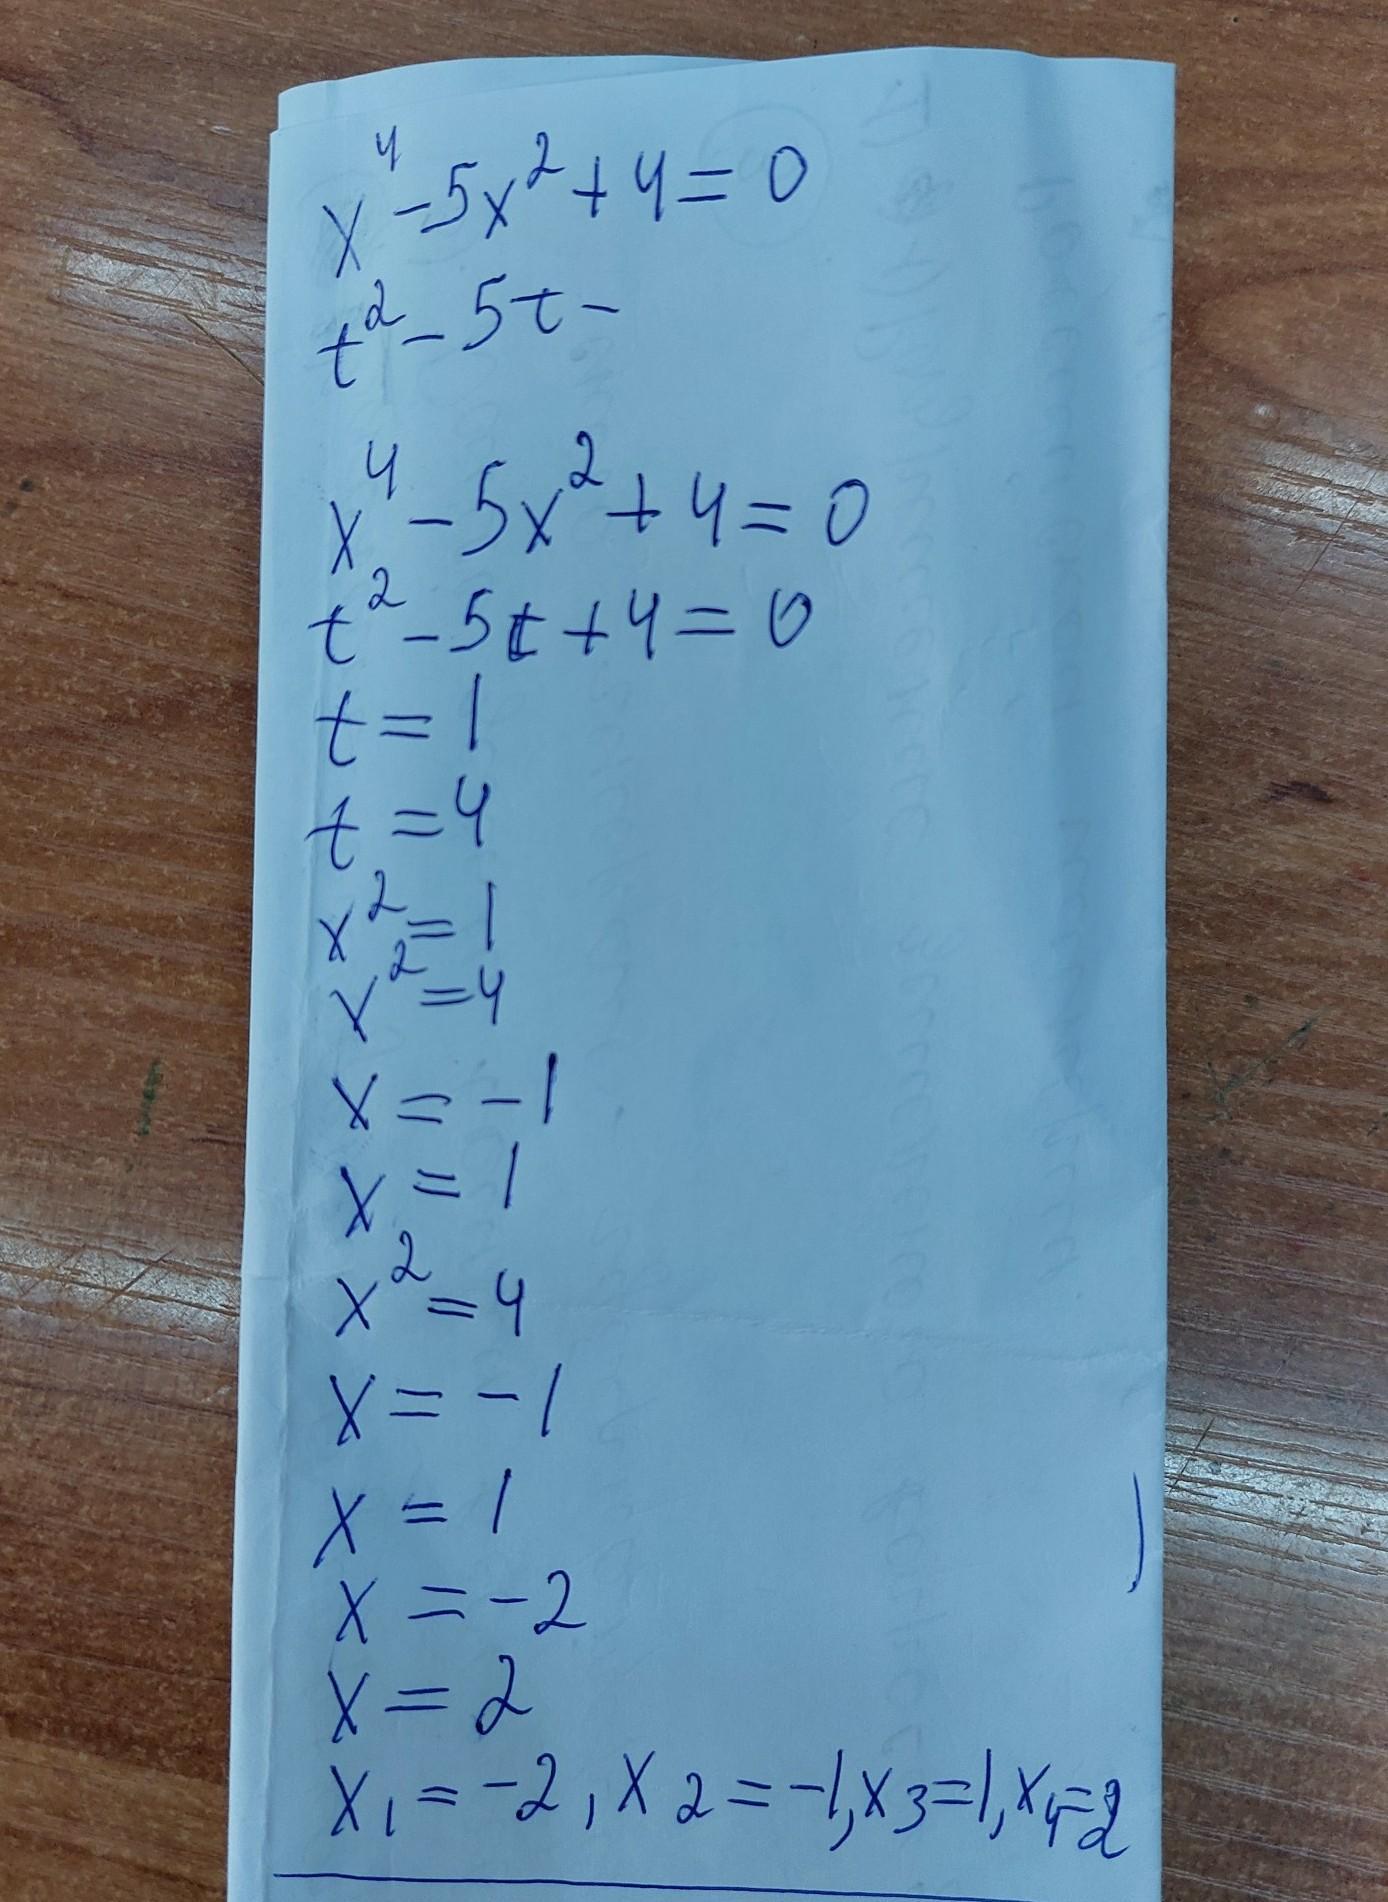 x⁴ - 5x² + 4 = 0
t² - 5t -
x⁴ - 5x² + 4 = 0
t² - 5t + 4 = 0
t = 1
t = 4
x² = 1
x² = 4
x = -1
x = 1
x² = 4
x = -1
x = 1
x = -2
x = 2
x₁ = -2, x₂ = -1, x₃ = 1, x₄ = 2